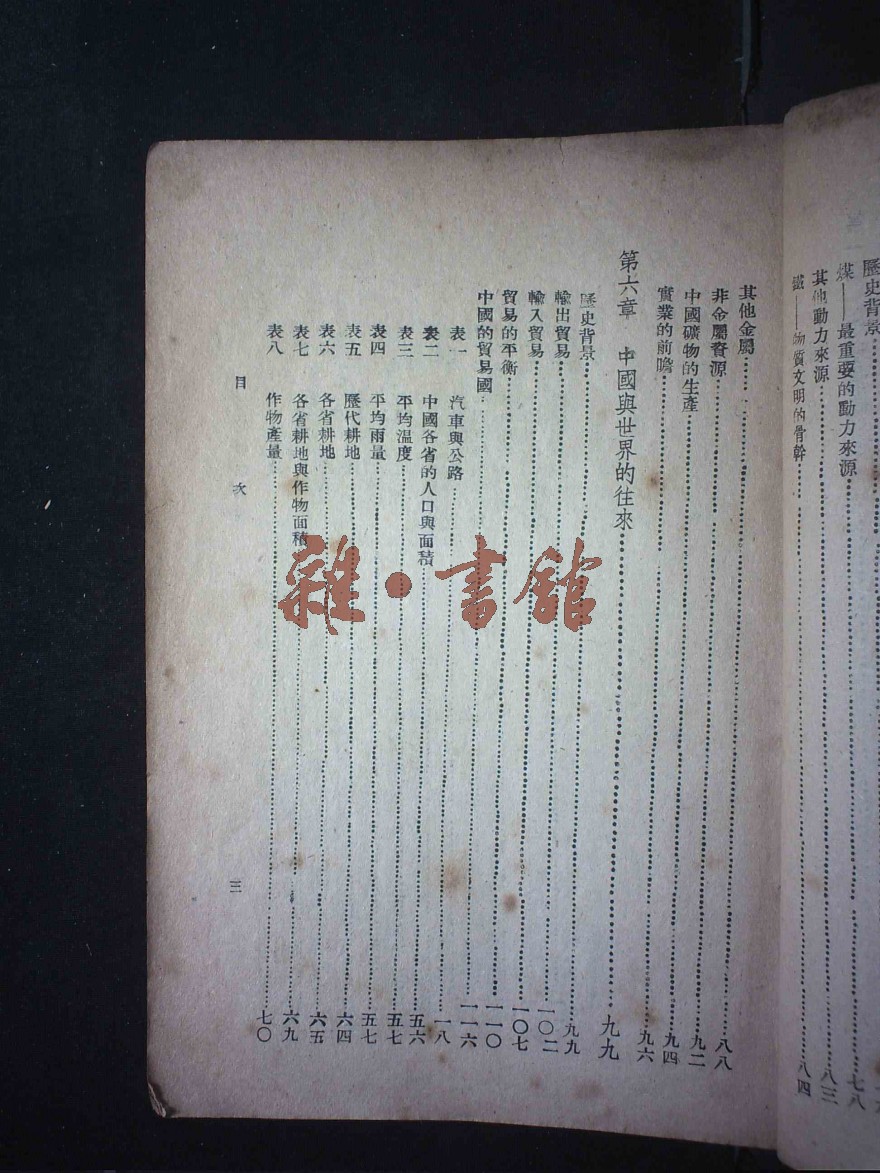 歷史背景
煤——最重要的動力來源 七八
其他動力來源 八三
鐵——物質文明的骨幹 八四
其他金屬 八八
非金屬資源 九二
中國礦物的生產 九四
實業的前瞻 九六
第六章 中國與世界的往來 九九
歷史背景 九九
輸出貿易 一〇二
輸入貿易 一〇七
貿易的平衡 一一〇
中國的貿易國 一一六
表一 汽車與公路 一八
表二 中國各省的人口與面積 五六
表三 平均温度 五七
表四 平均雨量 五七
表五 歷代耕地 六四
表六 各省耕地 六五
表七 各省耕地與作物面積 六九
表八 作物產量 七〇
目次
三
雜·書館